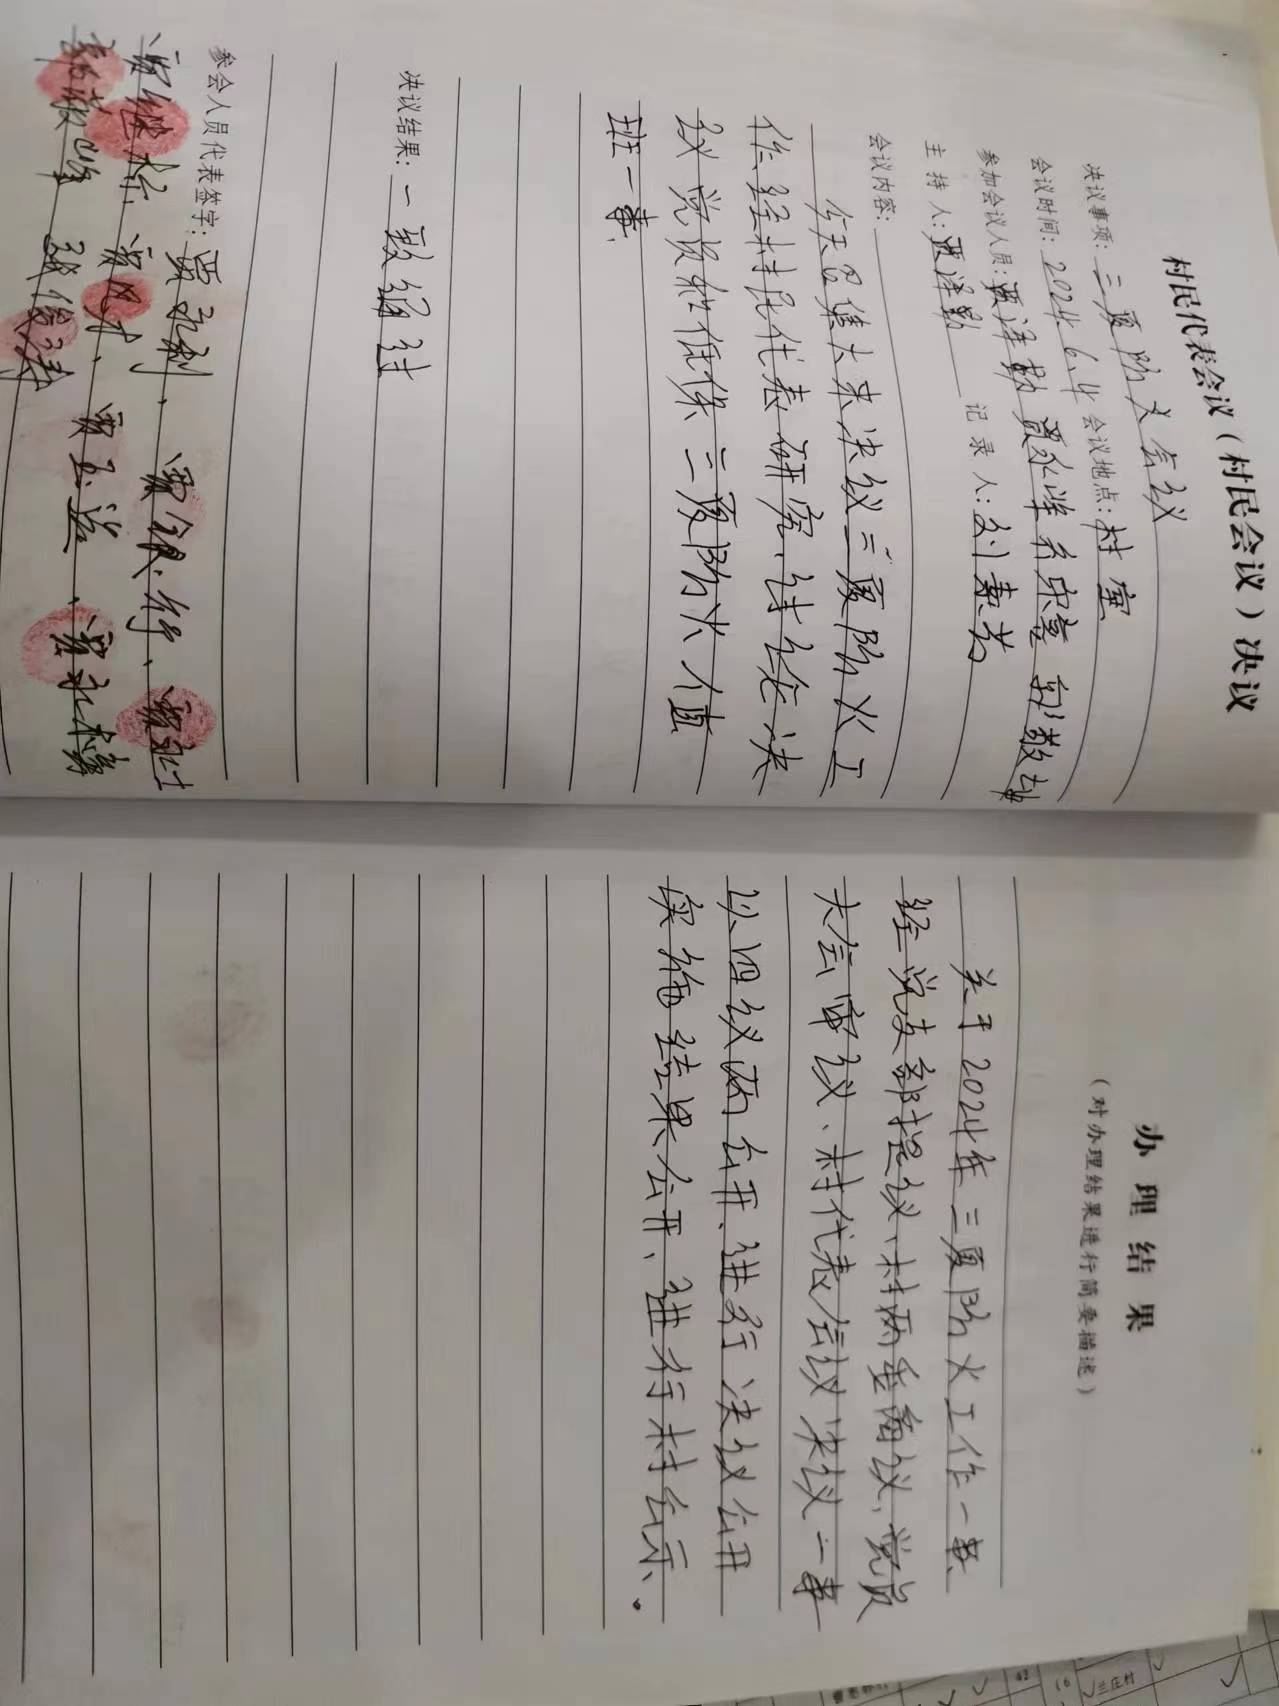 村民代表会议（村民会议）决议
决议事项：三夏防火会议
会议时间：2024.6.4 会议地点：村室
参加会议人员：贾泽勤 贾永峰
主 持 人：贾泽勤 记 录 人：刘素芳
会议内容：
今天召集大来决议三夏防火工
作、经村民代表研究、讨论决
议党员和低保三夏防火值
班一事、
决议结果：一致通过
参会人员代表签字：贾永利、
贾玉
办理结果
（对办理结果进行简要描述）
关于2024年三夏防火工作一事、
经党支部提议、村两委商议、党员
大会审议、村代表会议决议一事
以四议两公开、进行决议公开
实施结果公开、进行村公示、